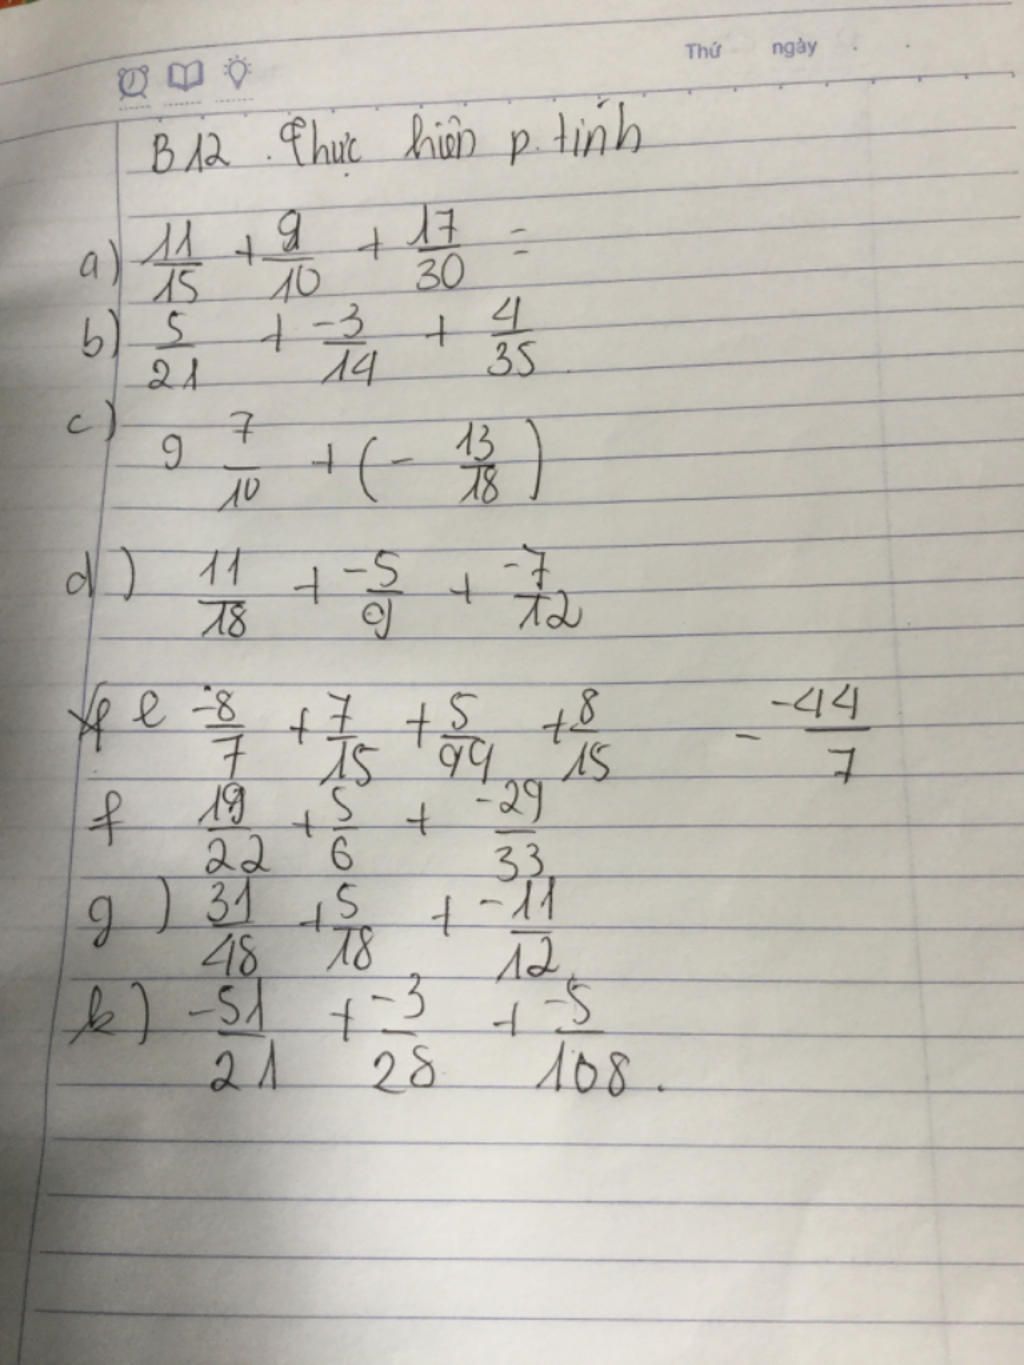 Thứ ngày
B12. Thực hiện p. tính
a) 11/15 + 9/10 + 17/30 =
b) 5/21 + -3/14 + 4/35
c) 9 7/10 + (- 13/18)
d) 11/18 + -5/9 + -7/12
e -8/7 + 7/15 + 5/99 + 8/15 - -44/7
f 19/22 + 5/6 + -29/33
g) 31/48 + 5/18 + -11/12
-51/21 + -3/28 + -5/108.